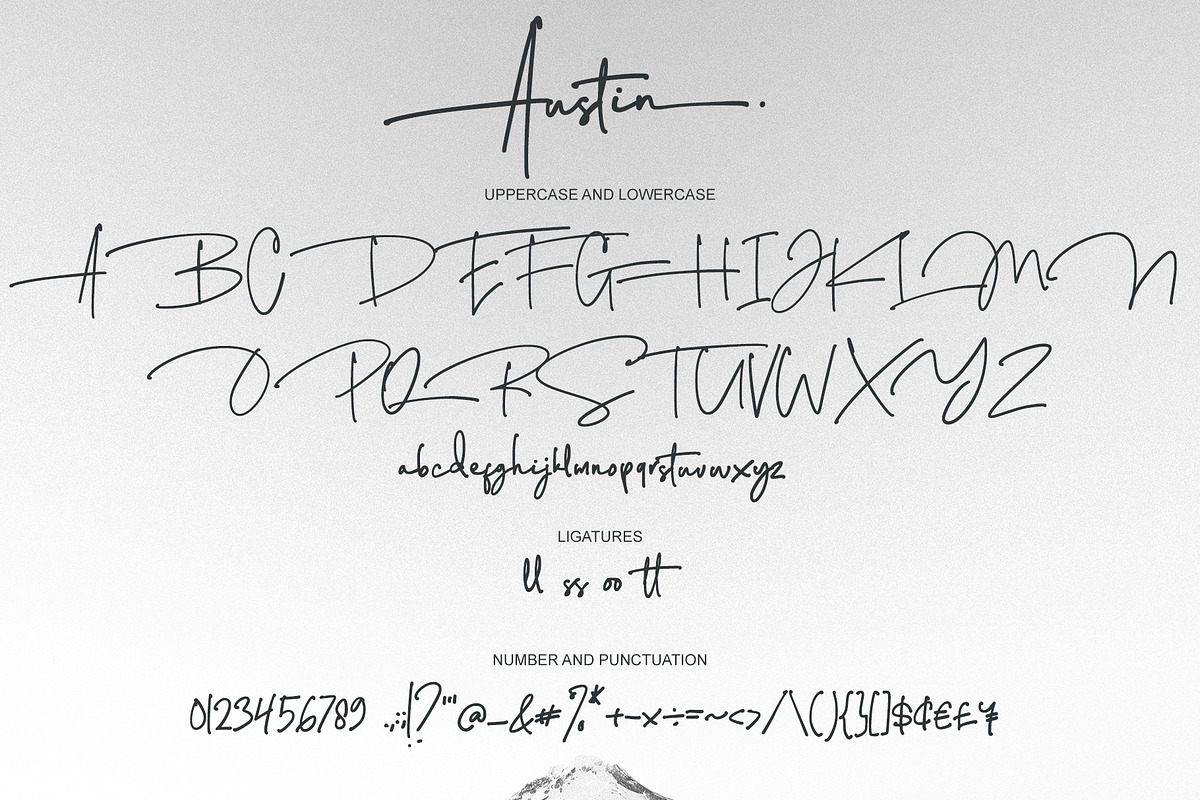 Austin.
UPPERCASE AND LOWERCASE
ABCDEFGHIJKLMN
OPQRSTUVWXYZ
abcdefghijklmnopqrstuvwxyz
LIGATURES
ll ss oo tt
NUMBER AND PUNCTUATION
0123456789 .,:;!?'"@_&#%*+-×÷=~<>/\(){}[]$¢€£¥